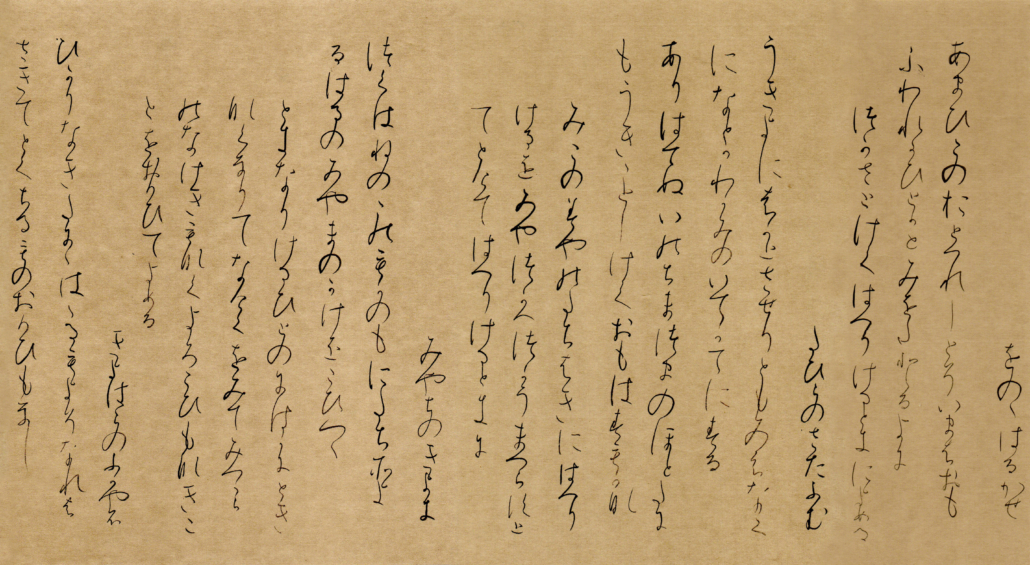 をのゝはるかせ
あまひこのおとつれしとそいまはおも
ふわれかひとかとみをたとるよに
つかさとけてはへりけるときによめる
たひらのさたふむ
うきよにはかとさせりともみえなく
になとかわかみのいてかてにする
ありはてぬいのちまつまのほとたに
もうきことしけくおもはすもかな
みこのみやのたちはきにはへり
けるをみやつかへつかうまつらすと
てとけてはへりけるときに
みやちのきよき
つくはねのこのもとことにたちそよ
るはるのみやまのかけをこひつゝ
ときなりけるひとのにはかにとき
なくなりてなけくをみてみつから
のなけきもなくよろこひもなきこ
とをおもひてよめる
きよはらのふかやふ
ひかりなきたにゝははるもよそなれは
さきてとくちるものおもひもなし